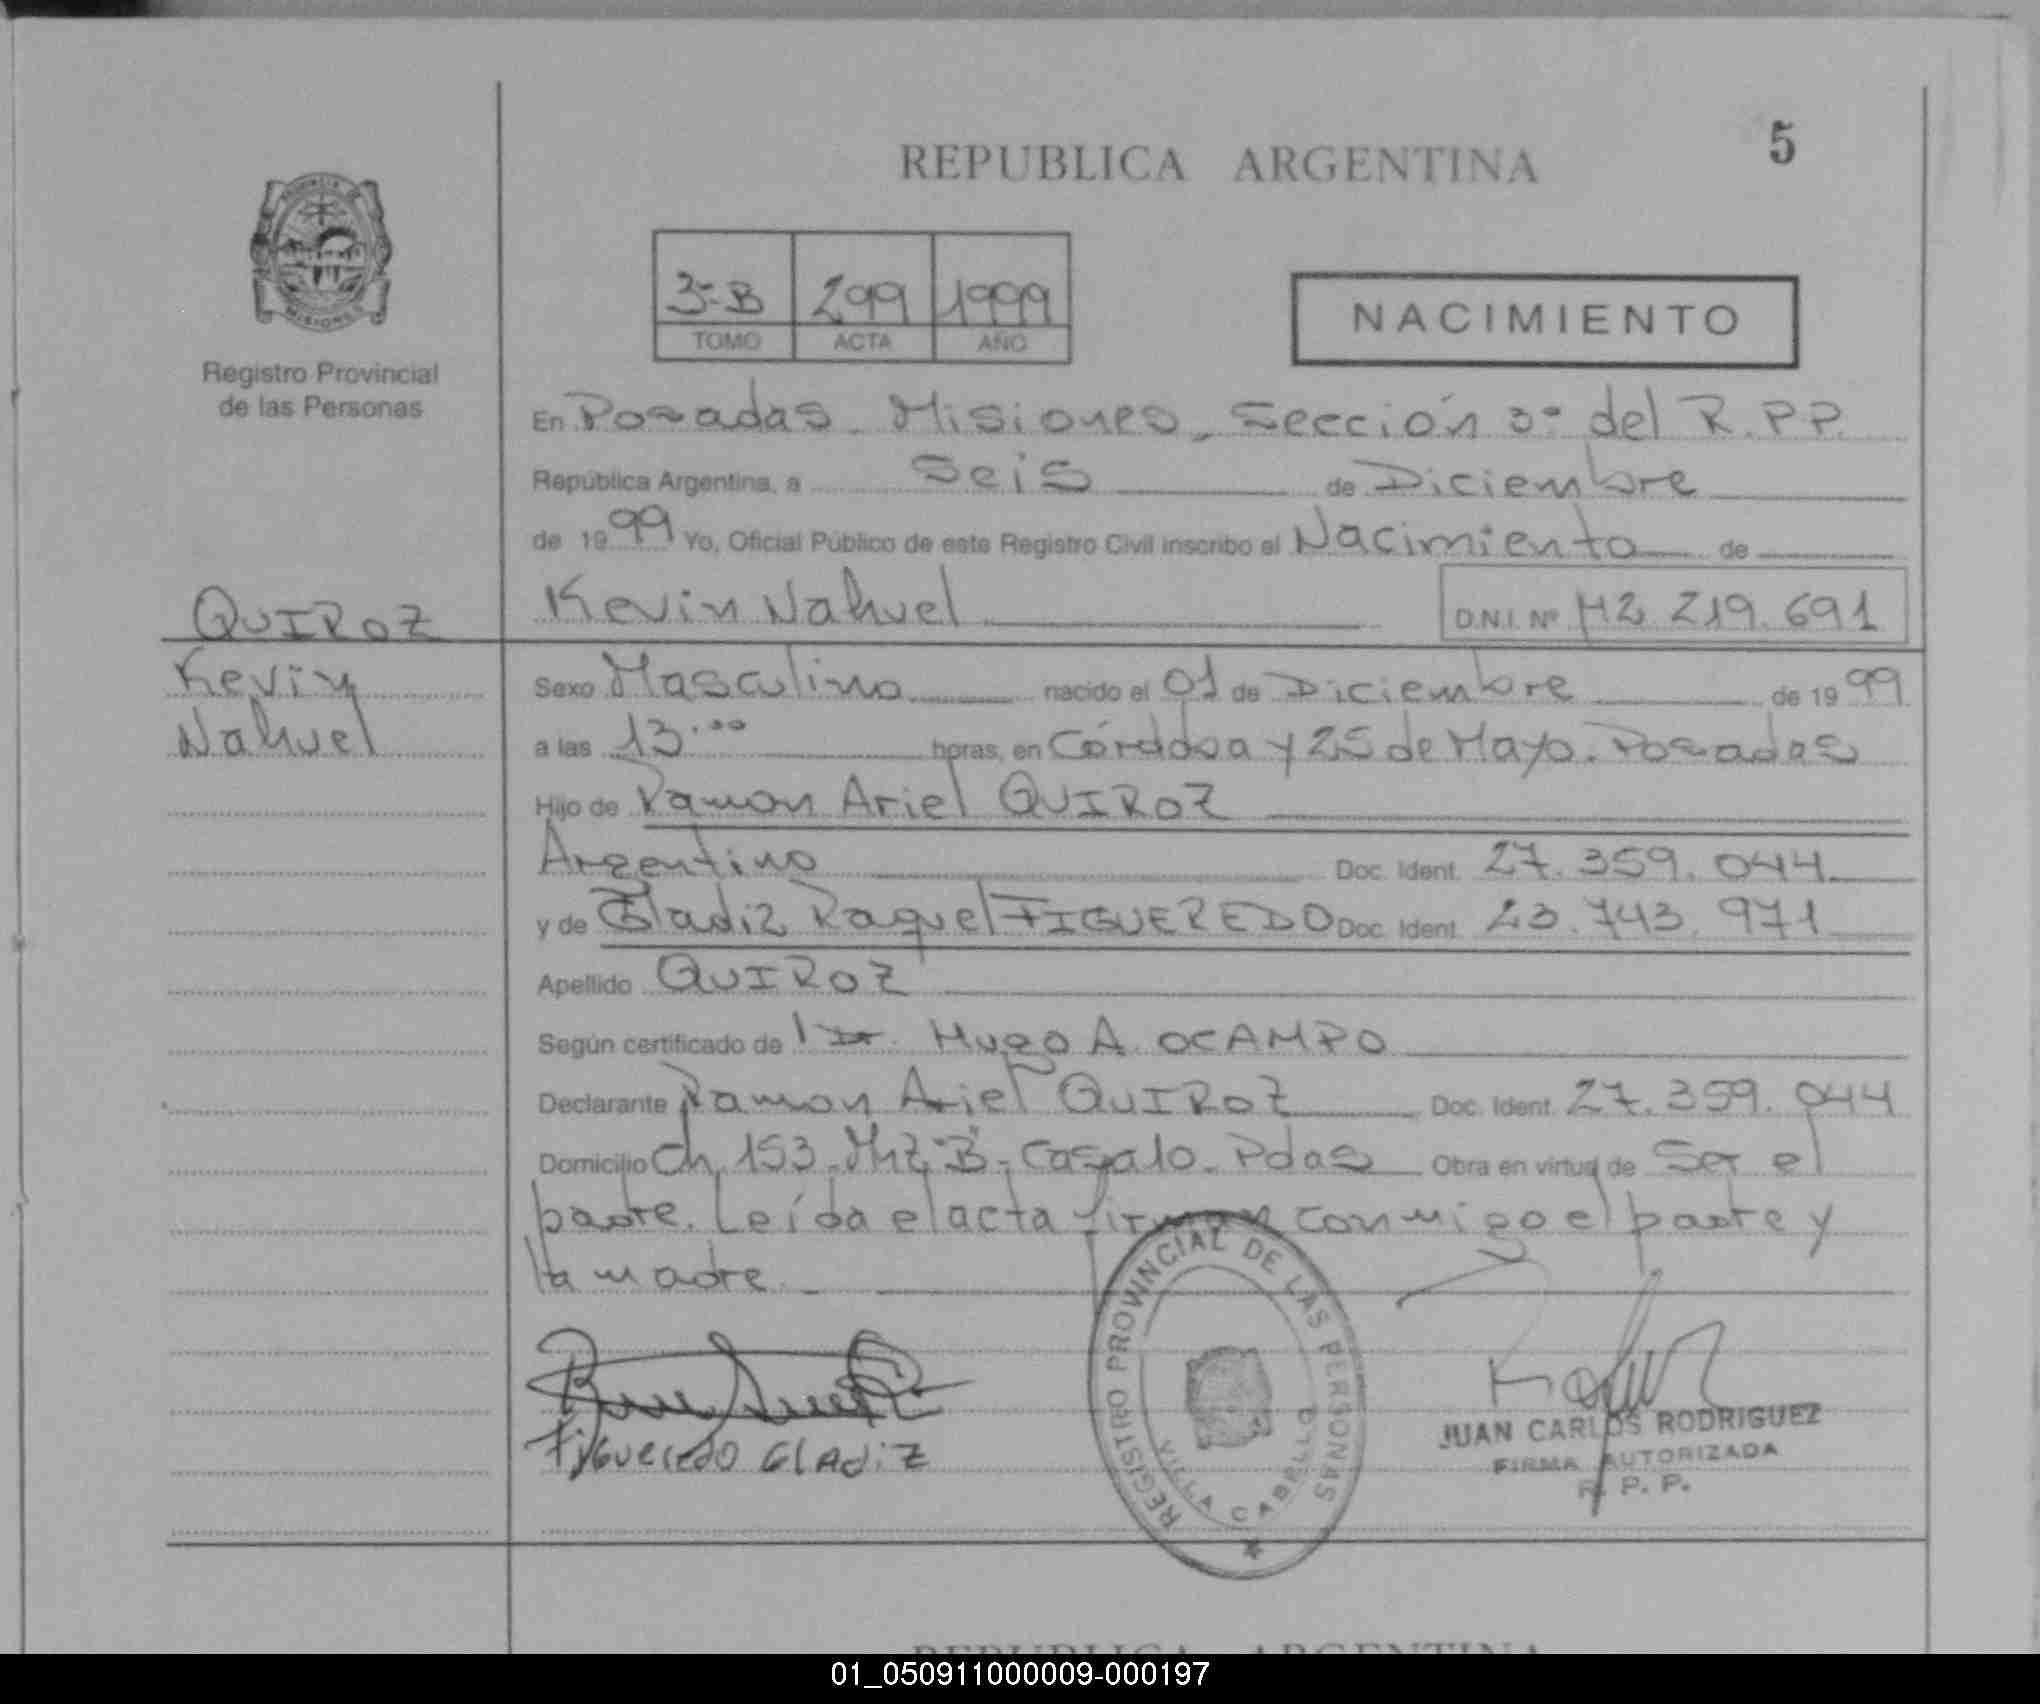 5
REPUBLICA ARGENTINA
3º-B 299 1999
TOMO ACTA AÑO
NACIMIENTO
Registro Provincial
de las Personas
En Posadas. Misiones. Sección 3º del R.P.P.
República Argentina, a seis de Diciembre
de 1999 Yo, Oficial Público de este Registro Civil inscribo el Nacimiento de
QUIROZ Kevin Nahuel D.N.I. Nº 42 219.691
Kevin Sexo Masculino nacido el 01 de Diciembre de 1999
Nahuel a las 13.00 horas, en Córdoba y 25 de Mayo. Posadas
Hijo de Ramon Ariel QUIROZ
Argentino Doc. Ident. 27.359.044
y de Gladiz Raquel FIGUEREDO Doc. Ident. 23.743.971
Apellido QUIROZ
Según certificado de Dr. Hugo A. OCAMPO
Declarante Ramon Ariel QUIROZ Doc. Ident. 27.359.044
Domicilio Ch. 153. Mz "B". Casa 10. Pdas Obra en virtud de Ser el
padre. Leída el acta firman conmigo el padre y
la madre.
Figueredo Gladiz
REGISTRO PROVINCIAL DE LAS PERSONAS
VILLA CABELLO
JUAN CARLOS RODRIGUEZ
FIRMA AUTORIZADA
R. P. P.
REPUBLICA ARGENTINA
01_050911000009-000197